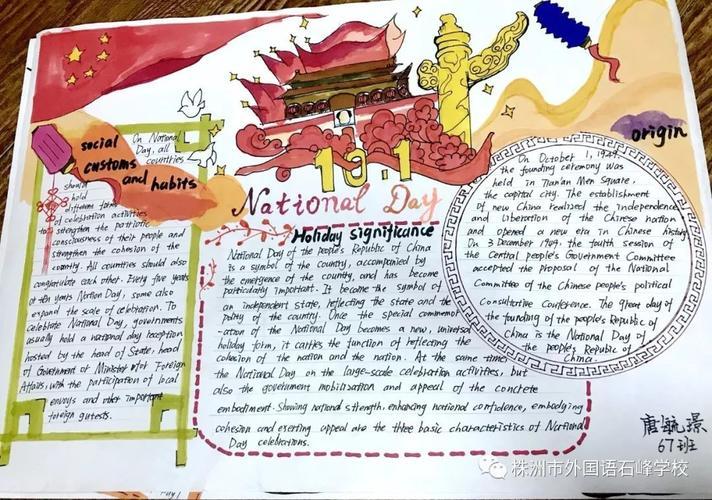 social
customs
and habits
On National
Day, all
countries
should
hold
different forms
of celebration activities
to strengthen the patriotic
consciousness of their people and
strengthen the cohesion of the
country. All countries should also
congratulate each other. Every five years
or ten years Nation Day, some also
expand the scale of celebration. To
celebrate National Day, governments
usually hold a national day reception
hosted by the head of State, head
of Government or Minister for Foreign
Affairs, with the participation of local
envoys and other important
foreign gutests.
10.1
National Day
Holiday significance
National Day of the people's Republic of China
is a symbol of the country, accompanied by
the emergence of the country, and has become
particularly important. It became the symbol of
an independent state, reflecting the state and the
polity of the country. Once the special commemor
ation of the National Day becomes a new, universal
holiday form, it carries the function of reflecting the
cohesion of the nation and the nation. At the same time
the National Day on the large-scale celebration activities, but
also the government mobilisation and appeal of the concrete
embodiment. Showing national strength, enhancing national confidence, embodying
cohesion and exerting appeal are the three basic characteristics of National
Day celebrations.
origin
On October 1, 1949.
the founding ceremony was
held in Tian'an Men Square,
the capital city. The establishment
of new China realized the independence
and liberation of the Chinese nation
and opened a new era in Chinese history
On 3 December 1949, the fourth session of
the Central people's Government Committee
accepted the proposal of the National
Committee of the Chinese people's political
Consultative Conference. The great day of
the founding of the people's Republic of
China is the National Day of
the people's Republic of
China.
唐毓璟
67班
株洲市外国语石峰学校